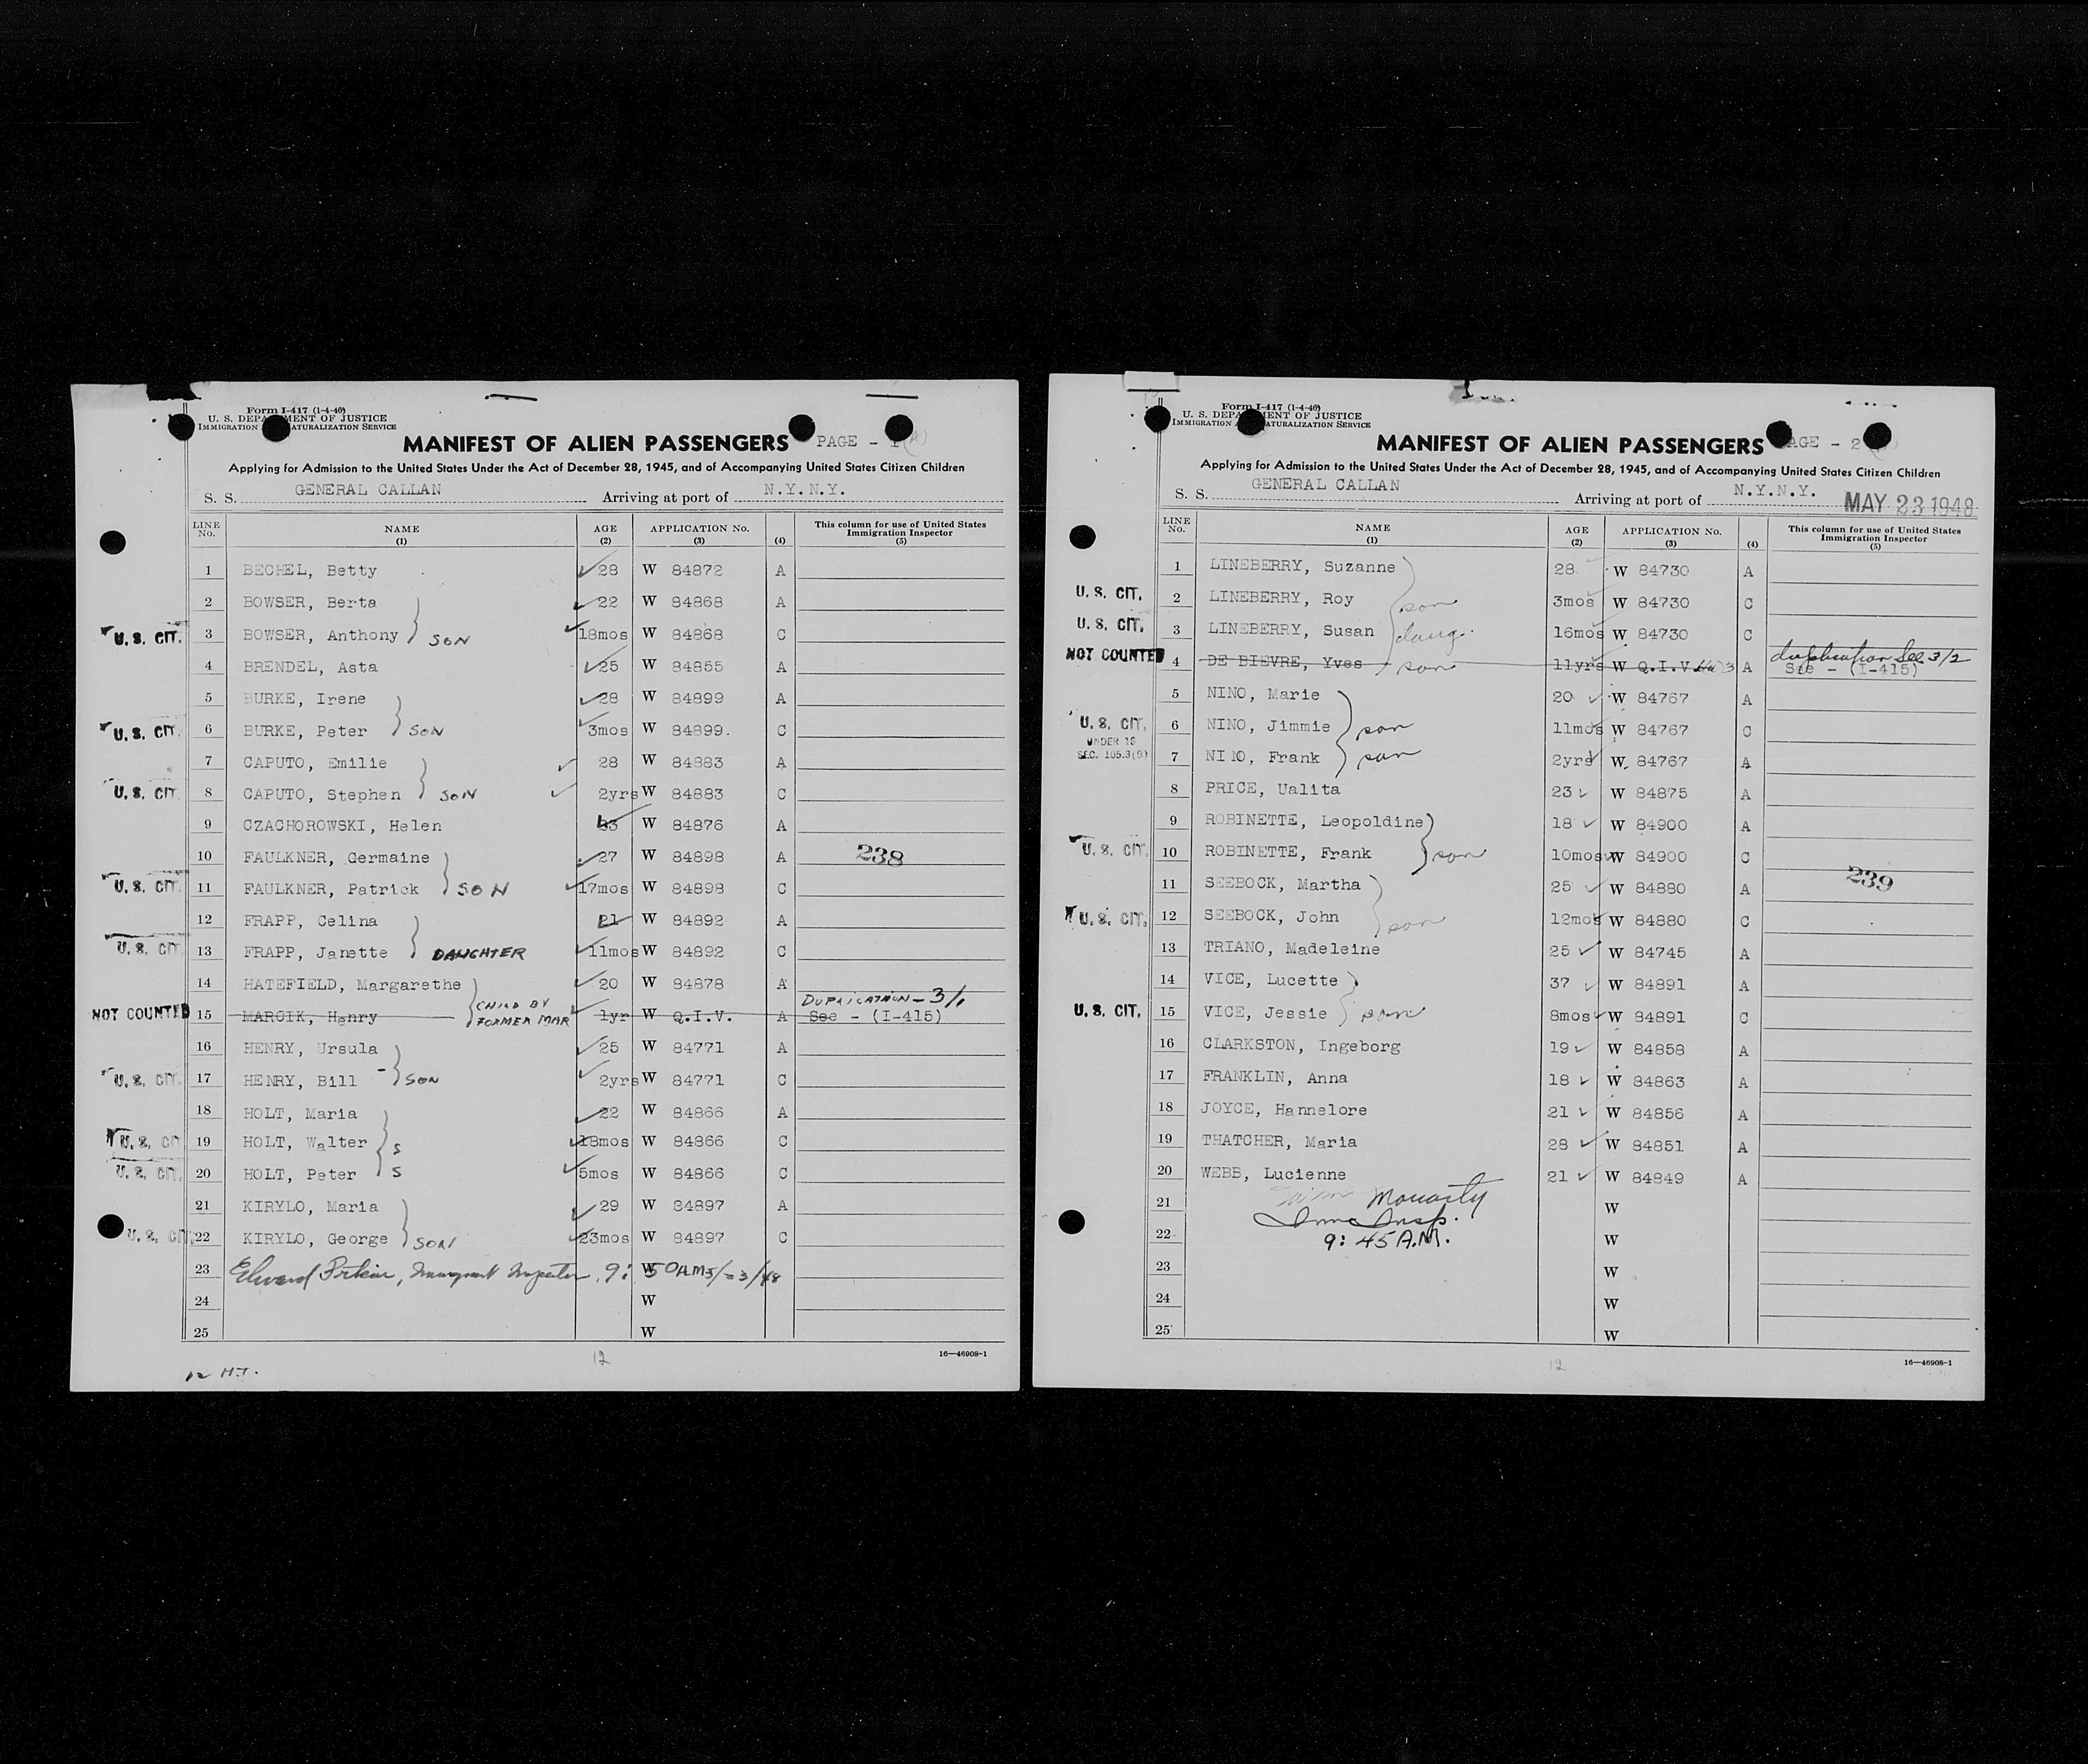 Form I-417 (1-4-46)
U. S. DEPA MENT OF JUSTICE
IMMIGRATION A ATURALIZATION SERVICE
MANIFEST OF ALIEN PASSENGERS PAGE - 1(A)
Applying for Admission to the United States Under the Act of December 28, 1945, and of Accompanying United States Citizen Children
S. S. GENERAL CALLAN Arriving at port of N.Y.N.Y.
LINE No. NAME (1) AGE (2) APPLICATION No. (3) (4) This column for use of United States Immigration Inspector (5)
1 BECHEL, Betty 28 W 84872 A
2 BOWSER, Berta 22 W 84868 A
U. S. CIT. 3 BOWSER, Anthony SON 18mos W 84868 C
4 BRENDEL, Asta 25 W 84855 A
5 BURKE, Irene 28 W 84899 A
U. S. CIT. 6 BURKE, Peter SON 3mos W 84899. C
7 CAPUTO, Emilie 28 W 84883 A
U. S. CIT. 8 CAPUTO, Stephen SON 2yrs W 84883 C
9 CZACHOROWSKI, Helen 33 W 84876 A
10 FAULKNER, Germaine 27 W 84898 A 238
U. S. CIT. 11 FAULKNER, Patrick SON 17mos W 84898 C
12 FRAPP, Celina 21 W 84892 A
U. S. CIT. 13 FRAPP, Janette DAUGHTER 11mos W 84892 C
14 HATEFIELD, Margarethe 20 W 84878 A
NOT COUNTED 15 MARCIK, Henry CHILD BY FORMER MAR 1yr W Q.I.V. A DUPLICATION - 3/1 See - (I-415)
16 HENRY, Ursula 25 W 84771 A
U. S. CIT. 17 HENRY, Bill SON 2yrs W 84771 C
18 HOLT, Maria 22 W 84866 A
U. S. CIT 19 HOLT, Walter S 18mos W 84866 C
U. S. CIT. 20 HOLT, Peter S 5mos W 84866 C
21 KIRYLO, Maria 29 W 84897 A
U. S. CIT. 22 KIRYLO, George SON 23mos W 84897 C
23 Edward Immigrant Inspector 9:50AM 5/23/48 W
24 W
25 W
16—46908-1
12
12 H.T.
Form I-417 (1-4-46)
U. S. DEPA MENT OF JUSTICE
IMMIGRATION A ATURALIZATION SERVICE
MANIFEST OF ALIEN PASSENGERS AGE - 2
Applying for Admission to the United States Under the Act of December 28, 1945, and of Accompanying United States Citizen Children
S. S. GENERAL CALLAN Arriving at port of N.Y.N.Y. MAY 23 1948
LINE No. NAME (1) AGE (2) APPLICATION No. (3) (4) This column for use of United States Immigration Inspector (5)
1 LINEBERRY, Suzanne 28 W 84730 A
U. S. CIT. 2 LINEBERRY, Roy son 3mos W 84730 C
U. S. CIT. 3 LINEBERRY, Susan daug. 16mos W 84730 C
NOT COUNTED 4 DE BIEVRE, Yves son 11yrs W Q.I.V. A duplication See 3/2 See - (I-415)
5 NINO, Marie 20 W 84767 A
U. S. CIT. 6 NINO, Jimmie son 11mos W 84767 C
UNDER 16 SEC. 105.3(B) 7 NINO, Frank son 2yrs W 84767 A
8 PRICE, Ualita 23 W 84875 A
9 ROBINETTE, Leopoldine 18 W 84900 A
U. S. CIT. 10 ROBINETTE, Frank son 10mos W 84900 C
11 SEEBOCK, Martha 25 W 84880 A 239
U. S. CIT. 12 SEEBOCK, John son 12mos W 84880 C
13 TRIANO, Madeleine 25 W 84745 A
14 VICE, Lucette 37 W 84891 A
U. S. CIT. 15 VICE, Jessie son 8mos W 84891 C
16 CLARKSTON, Ingeborg 19 W 84858 A
17 FRANKLIN, Anna 18 W 84863 A
18 JOYCE, Hannelore 21 W 84856 A
19 THATCHER, Maria 28 W 84851 A
20 WEBB, Lucienne 21 W 84849 A
21 Wm Moriarty W
Imm Insp.
22 9:45 A.M. W
23 W
24 W
25 W
12
16—46908-1